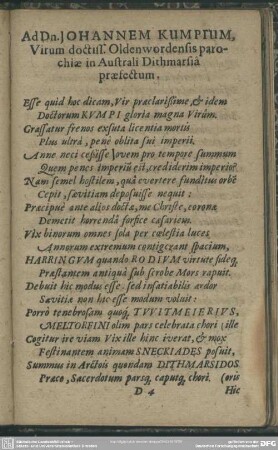 Ad Dn. JOHANNEM KUMPIUM,
Virum doctiss. Oldenwordensis paro-
chiæ in Australi Dithmarsiâ
præfectum,
Esse quid hoc dicam, Vir præclarissime, & idem
Doctorum KVMPI gloria magna Virûm.
Grassatur frenos exsuta licentia mortis
Plus ultrà, penè oblita sui imperii.
Anne neci cessisse Jovem pro tempore summum
Quem penes imperii est, rediderim imperium?
Nam semel hostilem, quâ evertere funditus orbē
Cepit, sævitiam deposuisse nequit:
Præcipuè ante alios doctæ, me Christe, coronæ
Demetit horrendâ forfice cæsariem.
Vix binorum omnes sola per cœlestia luces
Annorum extremum contigerant spacium,
HARRINGVM quando RODIVM virtute fideq́,
Præstantem antiquâ sub scrobe Mors rapuit.
Debuit hic modus esse: sed insatiabilis ardor
Sævitiæ non hic esse modum voluit:
Porrò tenebrosam quoq́, TVVITMEIERIVS,
MELTORFINI olim pars celebrata chori: ille
Cogitur ire viam Vix ille hinc iverat, & mox
Festinantem animam SNECKIADES posuit,
Summus in Arctois quondam DITHMARSIDOS
Præco, Sacerdotum parsq́, caputq́, chori. (oris
D 4
Hic